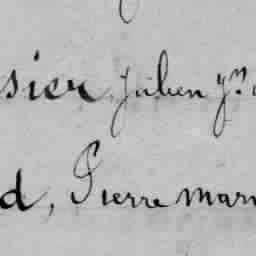 sier Julien
d, Pierre mar